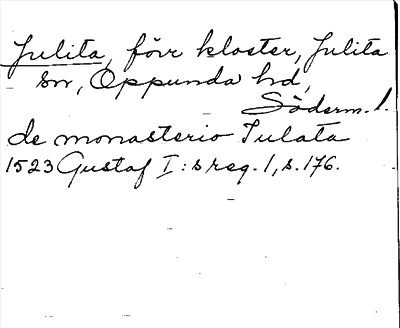 Julita, förr kloster, Julita
sn, Oppunda hd,
Söderm. l.
de monasterio Iulata
1523 Gustaf I:s reg. 1, s. 176.